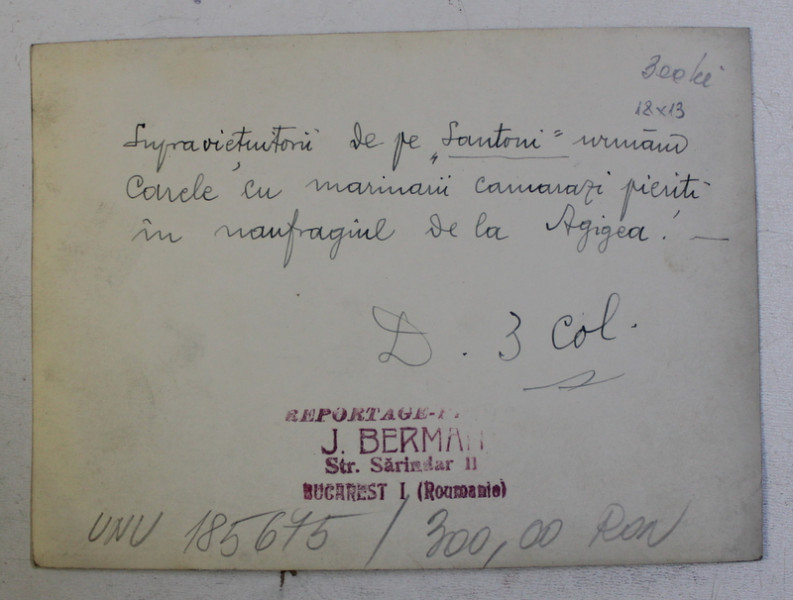 300 lei
18x13
Supraviețuitorii de pe „Santoni" urmând
carele cu marinarii camarazi pieriți
în naufragiul de la Agigea! —
D. 3 col.
REPORTAGE-
J. BERMAN
Str. Sărindar 11
BUCAREST I, (Roumanie)
UNU 185675 / 300,00 RON